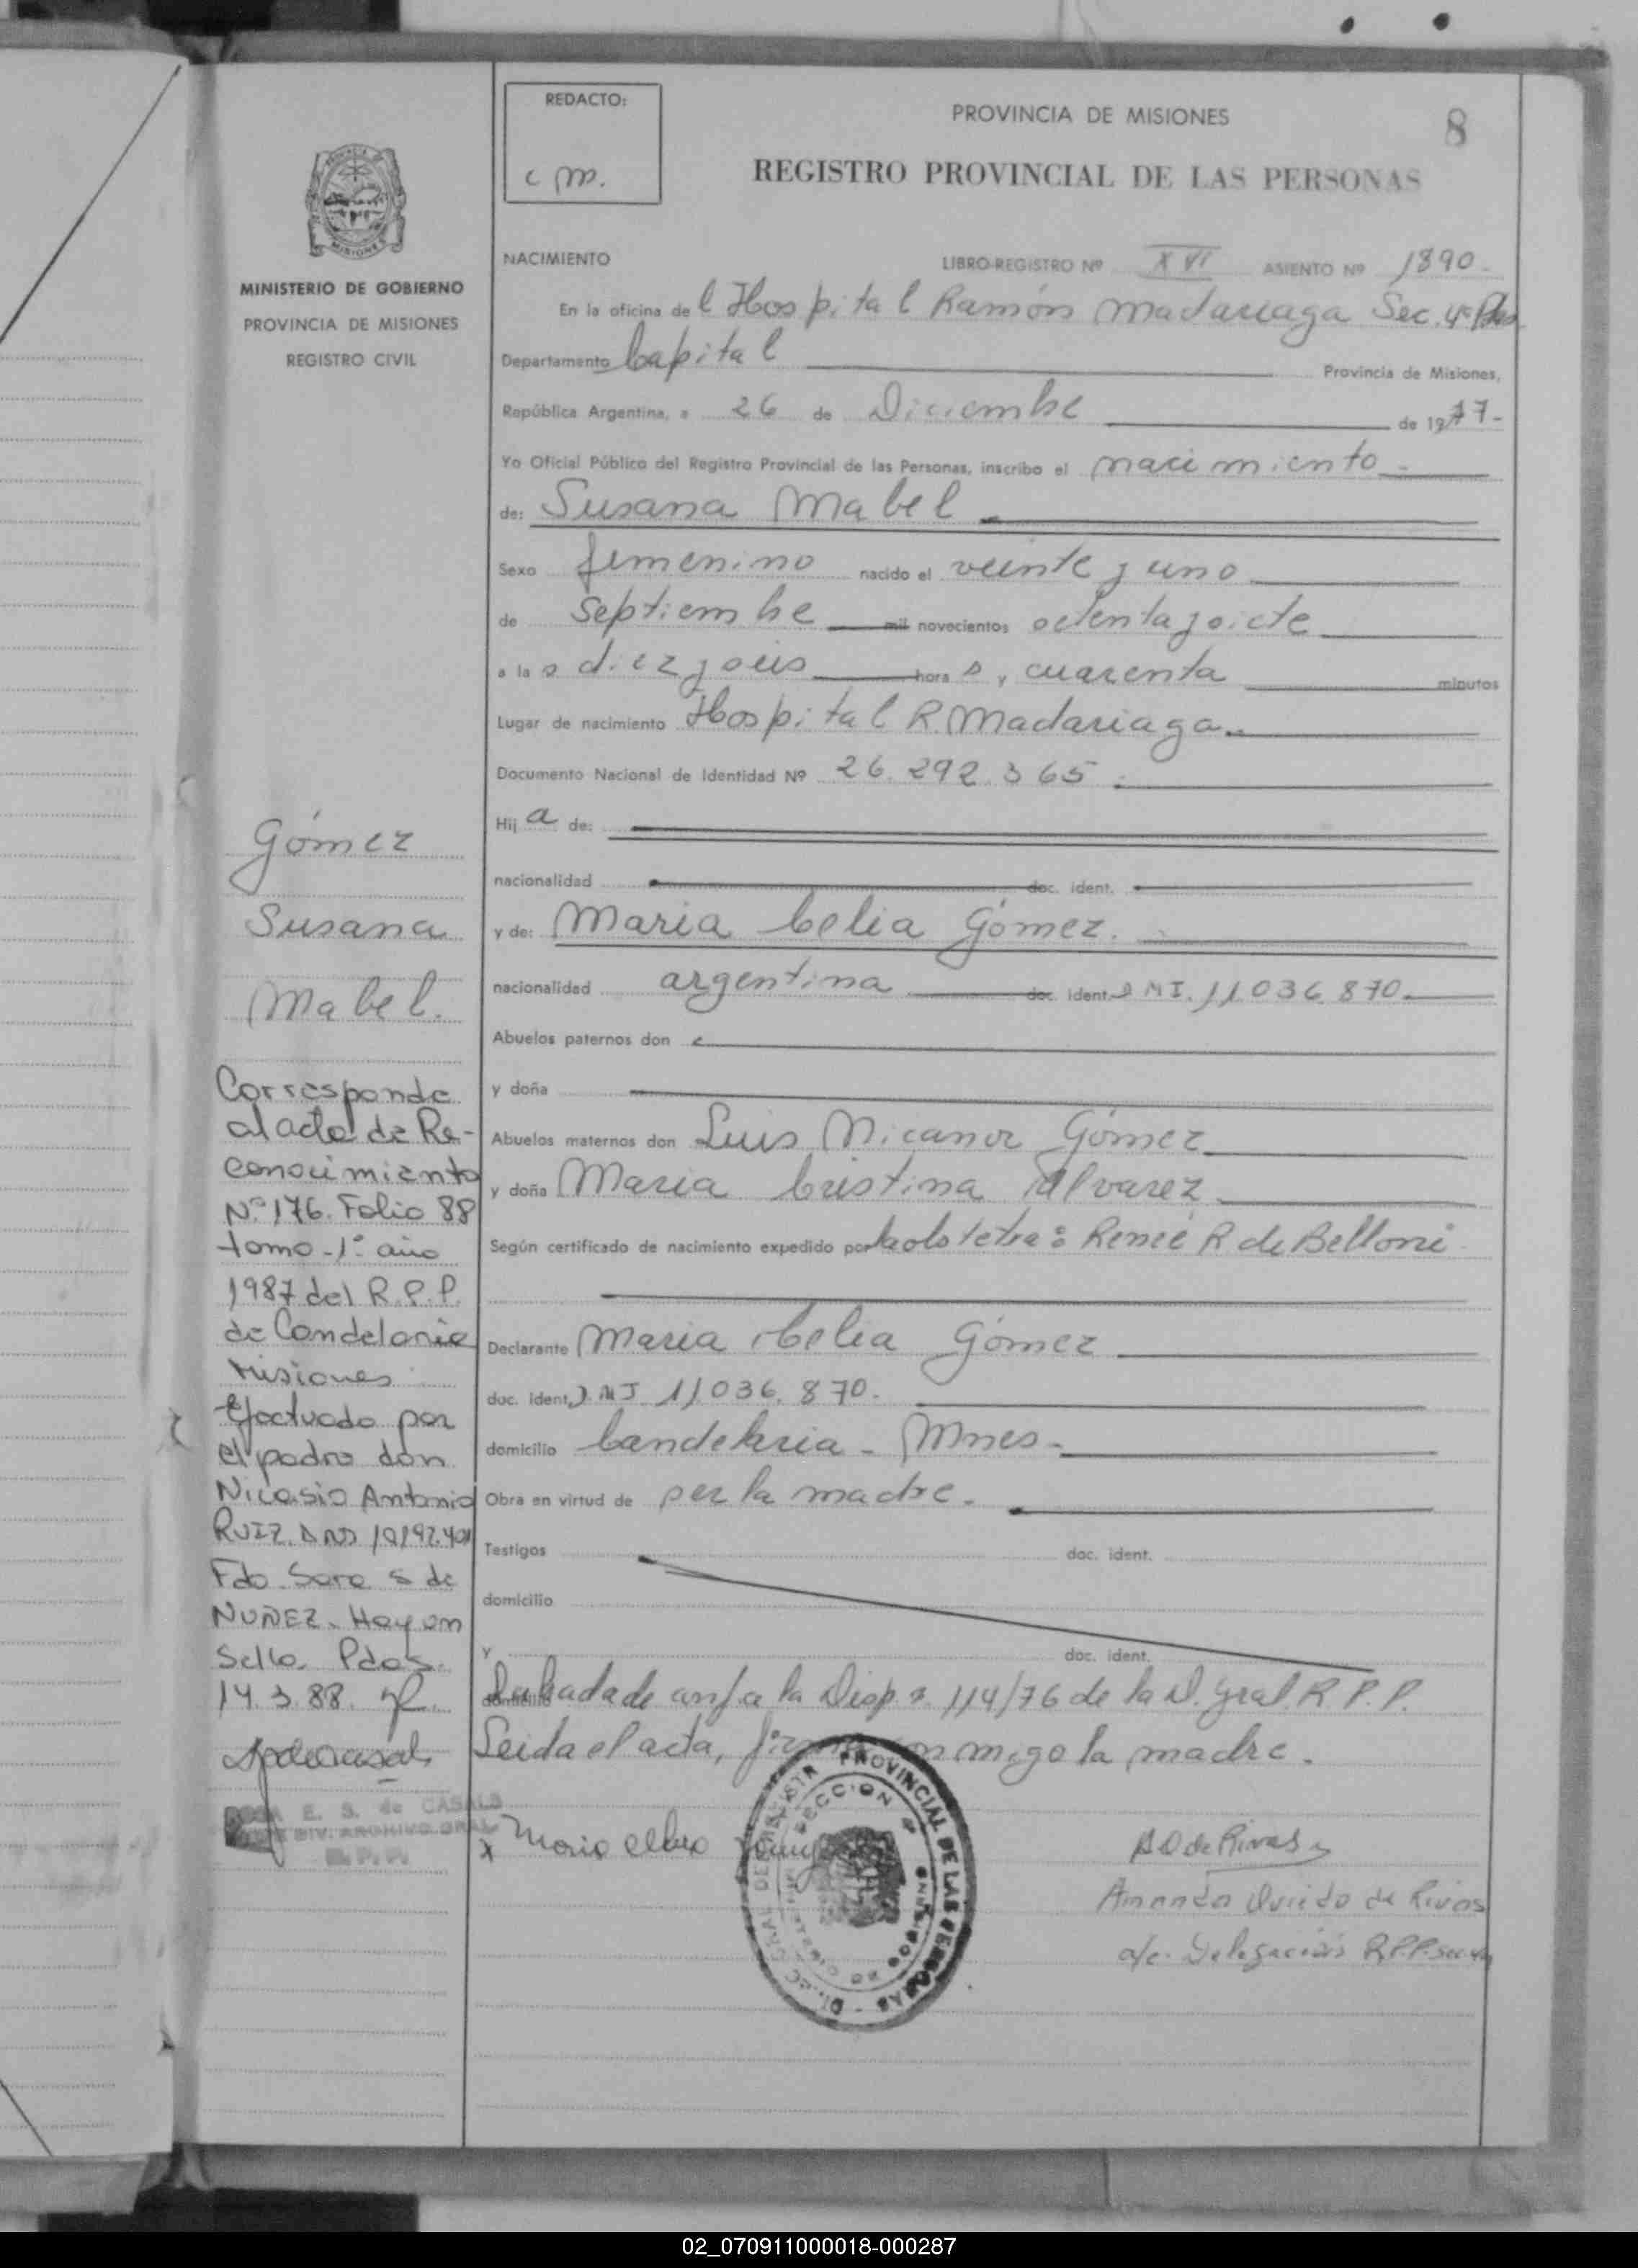 REDACTO:
c m.
PROVINCIA DE MISIONES
8
REGISTRO PROVINCIAL DE LAS PERSONAS
MISIONES
MINISTERIO DE GOBIERNO
PROVINCIA DE MISIONES
REGISTRO CIVIL
NACIMIENTO LIBRO-REGISTRO Nº XVI ASIENTO Nº 1890.
En la oficina de l Hospital Ramón Madariaga Sec. 4ª
Departamento Capital Provincia de Misiones,
República Argentina, a 26 de Diciembre de 1977-
Yo Oficial Público del Registro Provincial de las Personas, inscribo el nacimiento
de: Susana Mabel
Sexo femenino nacido el veinte y uno
de septiembre mil novecientos setenta y siete
a la s diez y seis hora s y cuarenta minutos
Lugar de nacimiento Hospital R. Madariaga
Documento Nacional de Identidad Nº 26.292.365
Hij a de:
nacionalidad doc. ident.
y de: Maria Celia Gómez.
nacionalidad argentina doc. ident. DNI. 11.036.870
Abuelos paternos don
y doña
Abuelos maternos don Luis Nicanor Gómez
y doña Maria Cristina Alvarez
Según certificado de nacimiento expedido por la obstetra: Reneé R de Belloni
Declarante Maria Celia Gómez
doc. ident. DNI 11.036.870.
domicilio Candelaria - Mnes-
Obra en virtud de ser la madre.
Testigos doc. ident.
domicilio
y doc. ident.
domicilio Labrada de conf. a la Disp. 114/76 de la D. Gral. R.P.P.
Leida el acta, firma conmigo la madre.
Gómez
Susana
Mabel.
Corresponde
al acta de Re-
conocimiento
Nº 176. Folio 88
tomo-1º año
1987 del R.P.P.
de Candelaria
Misiones
Efectuado por
el padre don
Nicasio Antonio
RUIZ. DNI 10.192.401
Fdo. Sara S de
NUÑEZ. Hay un
Sello. Pdas.
14.3.88.
ROSA E. S. de CASALS
DIV. ARCHIVO GRAL
R.P.P.
x Maria Celia Gomez
DIREC. GRAL. DEL REGISTR PROVINCIAL DE LAS PERSONAS
SECCION 4
A O de Rivas
Amanda Oviedo de Rivas
a/c. Delegación R.P.P. Sec. 4ª
02_070911000018-000287